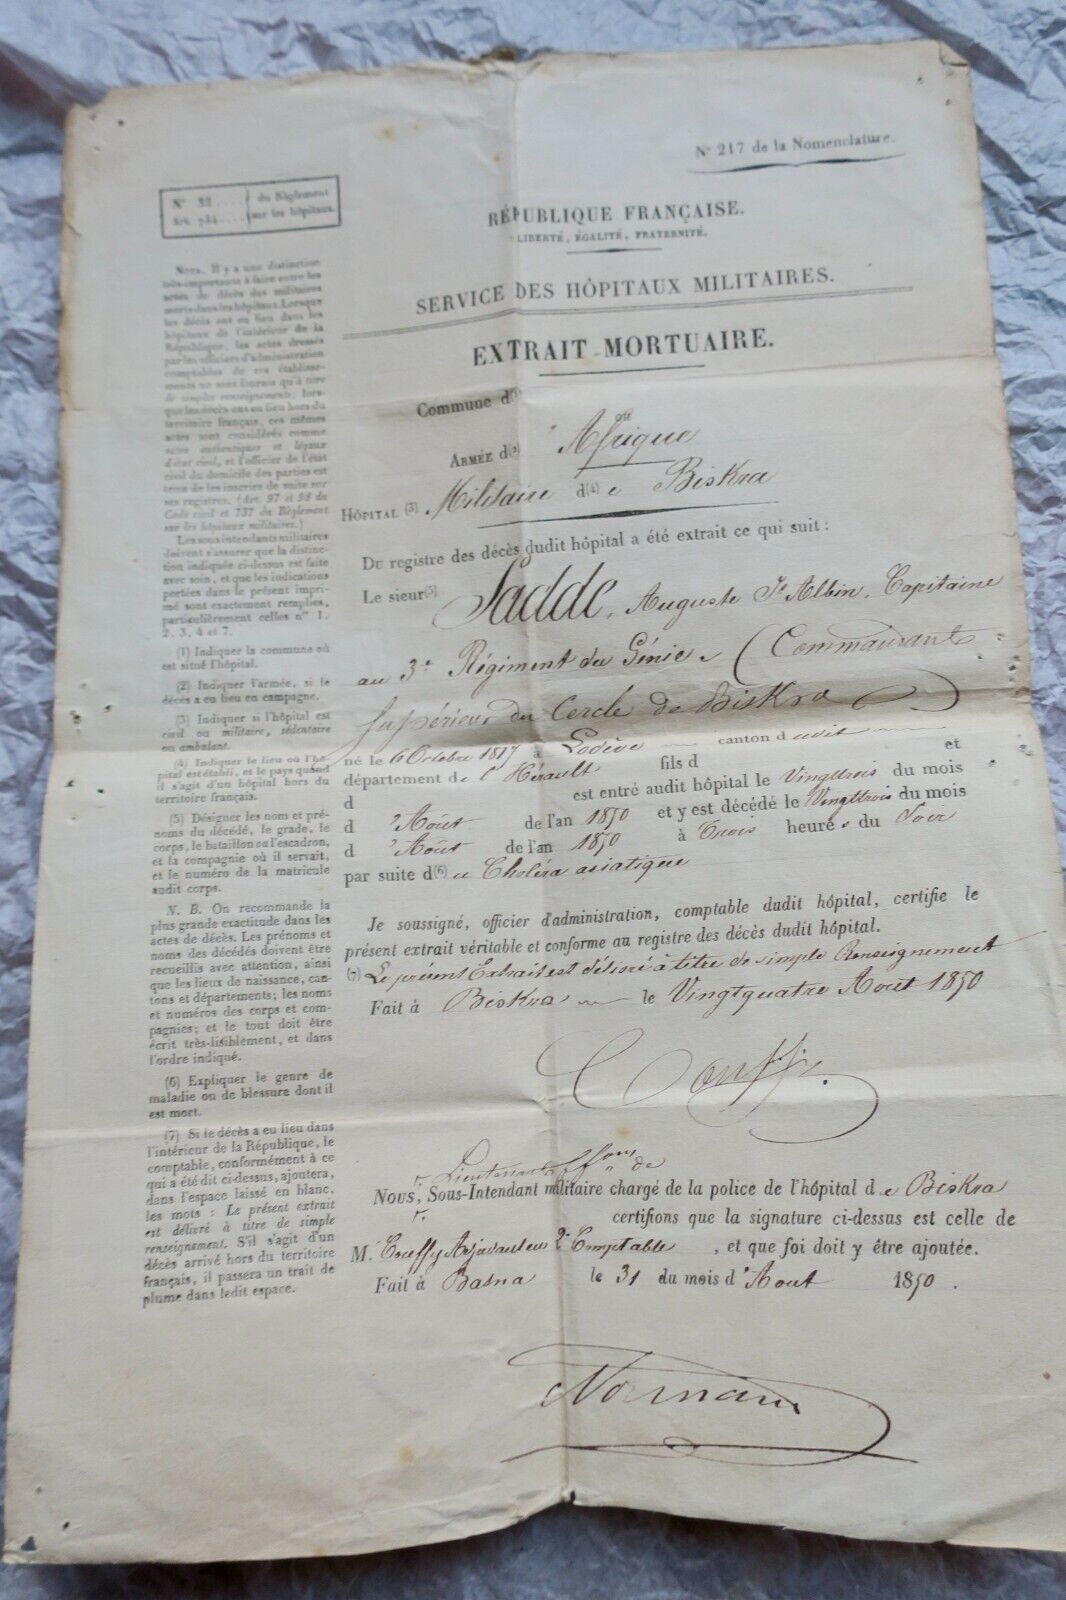 N° 217 de la Nomenclature.
N° 52 .... du Règlement
Art. 734 .... sur les hôpitaux.
RÉPUBLIQUE FRANÇAISE.
LIBERTÉ, ÉGALITÉ, FRATERNITÉ.
SERVICE DES HÔPITAUX MILITAIRES.
EXTRAIT MORTUAIRE.
Commune d(1)
ARMÉE d(2) 'Afrique
HÔPITAL (3) Militaire d(4) e Biskra
Du registre des décès dudit hôpital a été extrait ce qui suit :
Le sieur(5) Sadde, Auguste St Albin, Capitaine
au 3e Régiment du Génie (Commandant
Supérieur du Cercle de Biskra)
né le 6 Octobre 1817 à Lodève canton d udit
département de l'Hérault fils d et
d est entré audit hôpital le Vingttrois du mois
d 'Août de l'an 1850 et y est décédé le Vingttrois du mois
d 'Août de l'an 1850 à Trois heures du Soir
par suite d(6) e Choléra asiatique
Je soussigné, officier d'administration, comptable dudit hôpital, certifie le
présent extrait véritable et conforme au registre des décès dudit hôpital.
(7) Le présent Extrait est délivré à titre de simple Renseignement
Fait à Biskra le Vingtquatre Août 1850
Lieutenant ffons de
Nous, Sous-Intendant militaire chargé de la police de l'hôpital d e Biskra
certifions que la signature ci-dessus est celle de
M. Comptable , et que foi doit y être ajoutée.
Fait à Batna le 31 du mois d 'Août 1850.
NOTA. Il y a une distinction
très-importante à faire entre les
actes de décès des militaires
morts dans les hôpitaux. Lorsque
les décès ont eu lieu dans les
hôpitaux de l'intérieur de la
République, les actes dressés
par les officiers d'administration
comptables de ces établisse-
ments ne sont fournis qu'à titre
de simples renseignements; lors-
que les décès ont eu lieu hors du
territoire français, ces mêmes
actes sont considérés comme
actes authentiques et légaux
d'état civil, et l'officier de l'état
civil du domicile des parties est
tenu de les inscrire de suite sur
ses registres. (Art. 97 et 98 du
Code civil et 737 du Règlement
sur les hôpitaux militaires.)
Les sous-intendants militaires
doivent s'assurer que la distinc-
tion indiquée ci-dessus est faite
avec soin, et que les indications
portées dans le présent impri-
mé sont exactement remplies,
particulièrement celles nos 1,
2, 3, 4 et 7.
(1) Indiquer la commune où
est situé l'hôpital.
(2) Indiquer l'armée, si le
décès a eu lieu en campagne.
(3) Indiquer si l'hôpital est
civil ou militaire, sédentaire
ou ambulant.
(4) Indiquer le lieu où l'hô-
pital est établi, et le pays quand
il s'agit d'un hôpital hors du
territoire français.
(5) Désigner les nom et pré-
noms du décédé, le grade, le
corps, le bataillon ou l'escadron,
et la compagnie où il servait,
et le numéro de la matricule
audit corps.
N. B. On recommande la
plus grande exactitude dans les
actes de décès. Les prénoms et
noms des décédés doivent être
recueillis avec attention, ainsi
que les lieux de naissance, can-
tons et départements; les noms
et numéros des corps et com-
pagnies; et le tout doit être
écrit très-lisiblement, et dans
l'ordre indiqué.
(6) Expliquer le genre de
maladie ou de blessure dont il
est mort.
(7) Si le décès a eu lieu dans
l'intérieur de la République, le
comptable, conformément à ce
qui a été dit ci-dessus, ajoutera,
dans l'espace laissé en blanc,
les mots : Le présent extrait
est délivré à titre de simple
renseignement. S'il s'agit d'un
décès arrivé hors du territoire
français, il passera un trait de
plume dans ledit espace.